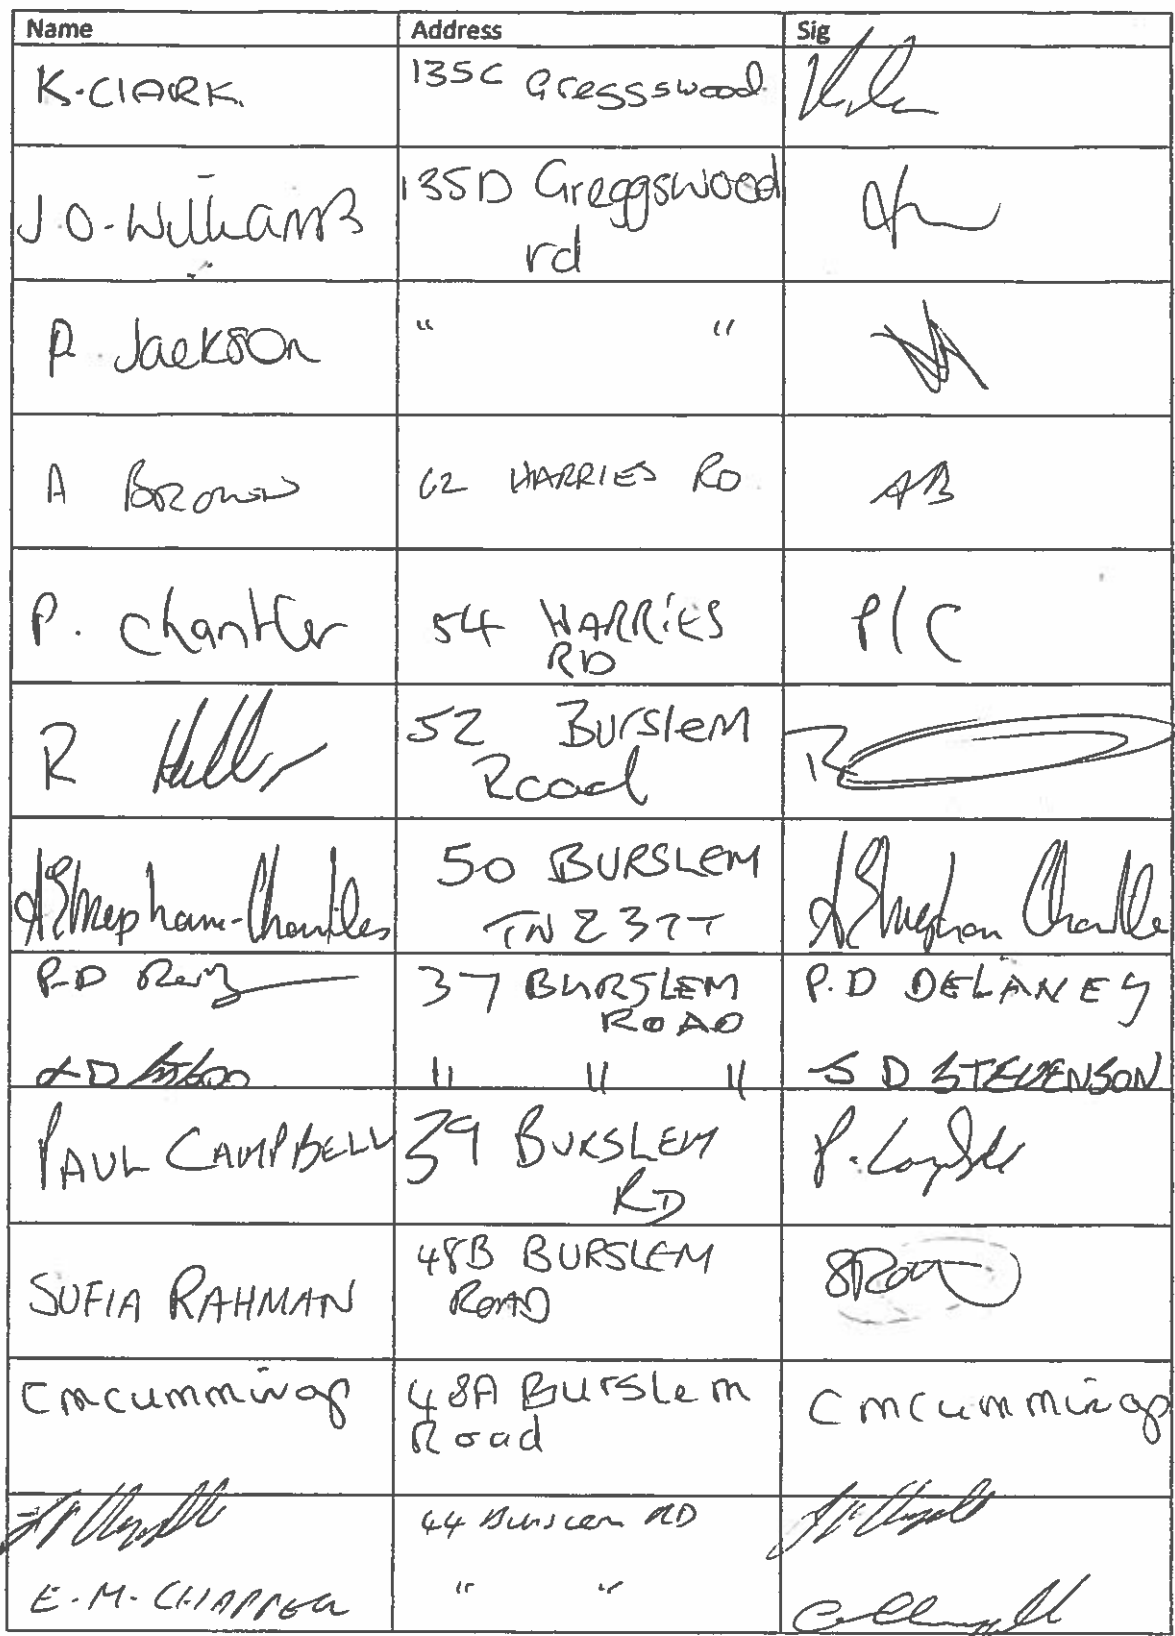 Name Address Sig
K. CLARK 135C Greggswood
J.O. Williams 135D Greggswood
rd
P. Jackson " "
A Brown 62 HARRIES RD AB
P. Chantler 54 HARRIES
RD P/C
R 52 Burslem
Road R
50 BURSLEM
TN2 3TT
P.D 37 BURSLEM
ROAD P.D DELANEY
" " " S D STEVENSON
PAUL CAMPBELL 39 BURSLEM
RD
SUFIA RAHMAN 48B BURSLEM
ROAD
C M Cummings 48A Burslem
Road C M Cummings
44 Burslem RD
E. M. CHAPPELL " "